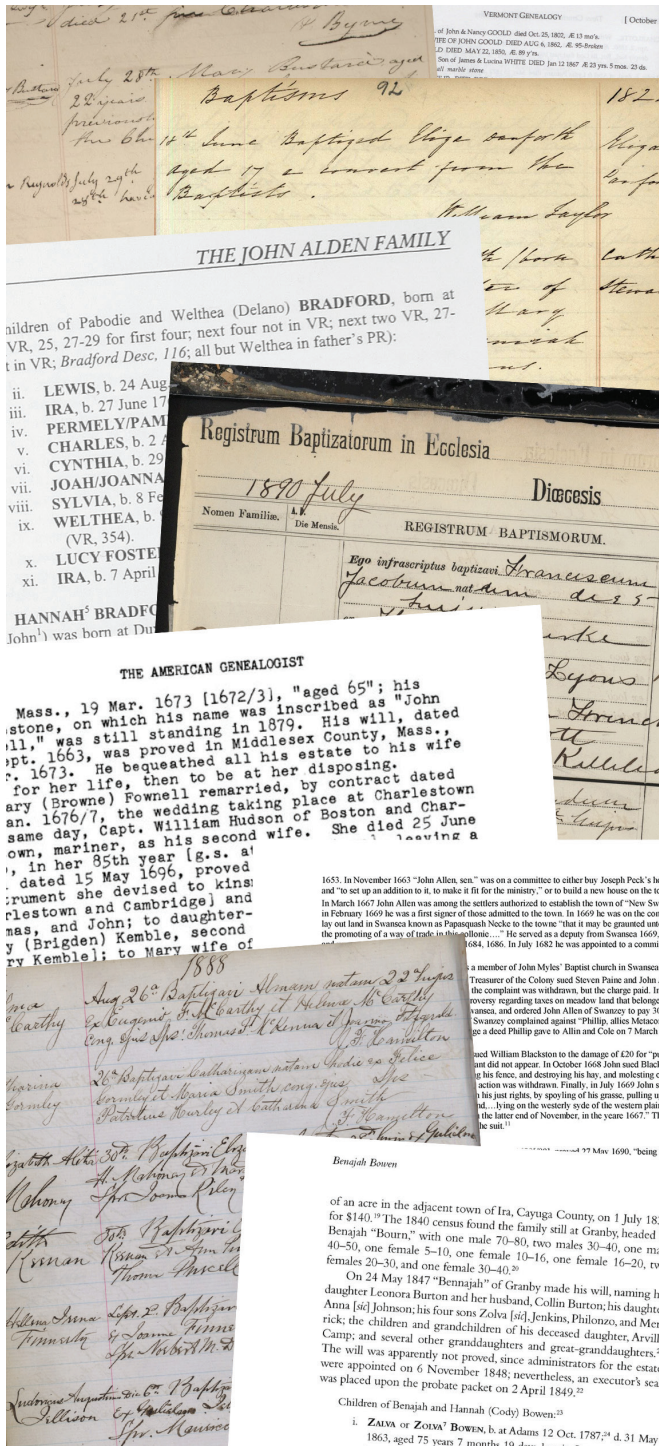 died 21st
Byrne
July 28th Mary Bustard aged
22 years
previous
the Ch
Reynolds July 29th
28th
VERMONT GENEALOGY [ October
. of John & Nancy GOOLD died Oct. 25, 1802, Æ 13 mo's.
IFE OF JOHN GOOLD DIED AUG 6, 1862, Æ. 95-Broken
LD DIED MAY 22, 1850, Æ. 89 y'rs.
Son of James & Lucina WHITE DIED Jan 12 1867 Æ 23 yrs. 5 mos. 23 ds.
all marble stone
Baptisms 92 182
18th June Baptized Eliza Danforth Eliza
aged 17 a convert from the Danfo
Baptists.
William Taylor
th / born Cath
ter of Stewa
Mary
THE JOHN ALDEN FAMILY
hildren of Pabodie and Welthea (Delano) BRADFORD, born at
VR, 25, 27-29 for first four; next four not in VR; next two VR, 27-
t in VR; Bradford Desc, 116; all but Welthea in father's PR):
ii. LEWIS, b. 24 Aug
iii. IRA, b. 27 June 17
iv. PERMELY/PAM
v. CHARLES, b. 2 A
vi. CYNTHIA, b. 29
vii. JOAH/JOANNA
viii. SYLVIA, b. 8 Fe
ix. WELTHEA, b.
(VR, 354).
x. LUCY FOSTE
xi. IRA, b. 7 April
HANNAH⁵ BRADFO
John¹) was born at Du
Registrum Baptizatorum in Ecclesia
1890 July Diœcesis
Nomen Familiæ. A. D. Die Mensis. REGISTRUM BAPTISMORUM.
Ego infrascriptus baptizavi Franciscum
Jacobum natum die 25
urke
Lyons
French
tt
Killile
THE AMERICAN GENEALOGIST
Mass., 19 Mar. 1673 [1672/3], "aged 65"; his
stone, on which his name was inscribed as "John
ll," was still standing in 1879. His will, dated
ept. 1663, was proved in Middlesex County, Mass.,
r. 1673. He bequeathed all his estate to his wife
for her life, then to be at her disposing.
ary (Browne) Fownell remarried, by contract dated
an. 1676/7, the wedding taking place at Charlestown
same day, Capt. William Hudson of Boston and Char-
own, mariner, as his second wife. She died 25 June
, in her 85th year [g.s. at leaving a
dated 15 May 1696, proved
trument she devised to kins
rlestown and Cambridge] and
mas, and John; to daughter-
y (Brigden) Kemble, second
ry Kemble]; to Mary wife of
1653. In November 1663 "John Allen, sen." was on a committee to either buy Joseph Peck's ho
and "to set up an addition to it, to make it fit for the ministry," or to build a new house on the to
In March 1667 John Allen was among the settlers authorized to establish the town of "New Sw
in February 1669 he was a first signer of those admitted to the town. In 1669 he was on the com
lay out land in Swansea known as Papasquash Necke to the towne "that it may be graunted unto
the promoting of a way of trade in this collonie…." He served as a deputy from Swansea 1669,
1684, 1686. In July 1682 he was appointed to a commi
s a member of John Myles' Baptist church in Swansea
Treasurer of the Colony sued Steven Paine and John A
the complaint was withdrawn, but the charge paid. In
roversy regarding taxes on meadow land that belonge
wansea, and ordered John Allen of Swanzey to pay 30
Swanzey complained against "Phillip, allies Metaco
ge a deed Phillip gave to Allin and Cole on 7 March
ued William Blackston to the damage of £20 for "pu
ant did not appear. In October 1668 John sued Black
g his fence, and destroying his hay, and molesting o
action was withdrawn. Finally, in July 1669 John s
n his just rights, by spoyling of his grasse, pulling u
nd,…lying on the westerly syde of the western plain
n the latter end of November, in the yeare 1667." Th
he suit.¹¹
around 27 May 1690, "being
1888
Alma McCarthy Aug 26th Baptizavi Almam natam 22 hujus
ex Eugenio F. McCarthy et Helena McCarthy
cong. ejus Sps. Thomas F. McKenna et Joanna Fitzgerald
J. Hamilton
Catharina Gormley 26th Baptizavi Catharinam natam hodie ex Felice
Gormley et Maria Smith cong. ejus Sps
Patritius Hurley et Catharina Smith
J. Hamilton
Mahony 30th Baptizavi Eliza
H. Mahony et Mar
Sps Joanna Riley
Edith Keenan 30th Baptizavi
Keenan et Ann
Thoma Purcell
Finnerty Sept. 2. Baptizavi
ex Joanne Finne
Sps. Norbert M. D
Jillison 6th Baptizavi
Sps. Maurice
Benajah Bowen
of an acre in the adjacent town of Ira, Cayuga County, on 1 July 183
for $140.¹⁹ The 1840 census found the family still at Granby, headed
Benajah "Bourn," with one male 70–80, two males 30–40, one ma
40–50, one female 5–10, one female 10–16, one female 16–20, tw
females 20–30, and one female 30–40.²⁰
On 24 May 1847 "Bennajah" of Granby made his will, naming h
daughter Leonora Burton and her husband, Collin Burton; his daught
Anna [sic] Johnson; his four sons Zolva [sic], Jenkins, Philonzo, and Mer
rick; the children and grandchildren of his deceased daughter, Arvill
Camp; and several other granddaughters and great-granddaughters.²
The will was apparently not proved, since administrators for the estate
were appointed on 6 November 1848; nevertheless, an executor's sea
was placed upon the probate packet on 2 April 1849.²²
Children of Benajah and Hannah (Cody) Bowen:²³
i. ZALVA or ZOLVA⁷ BOWEN, b. at Adams 12 Oct. 1787;²⁴ d. 31 May
1863, aged 75 years 7 months 19 days